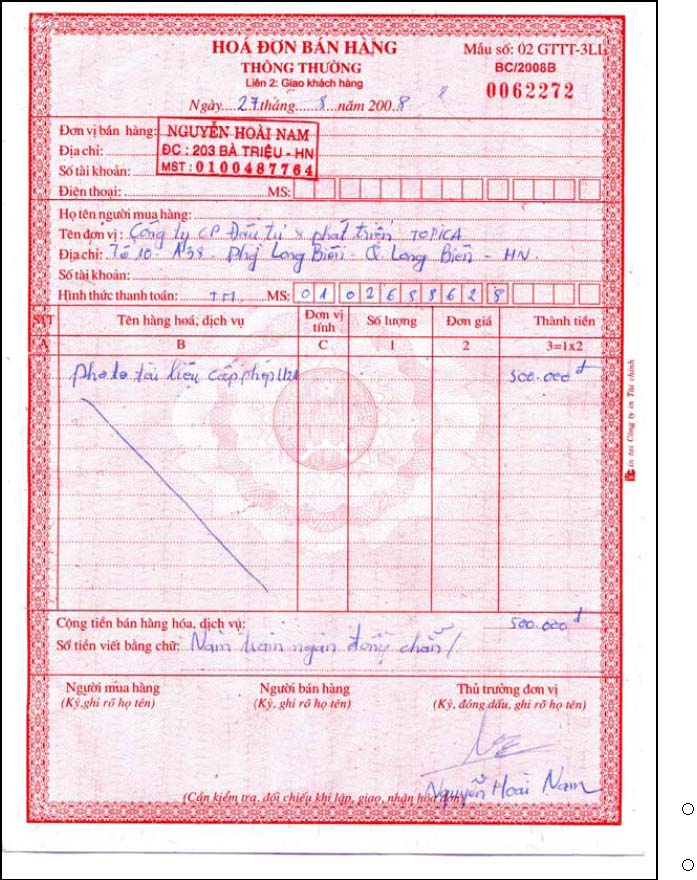 HOÁ ĐƠN BÁN HÀNG
Mẫu số: 02 GTTT-3LL
THÔNG THƯỜNG
BC/2008B
Liên 2: Giao khách hàng
0062272
Ngày....27tháng....8...năm 200..8
Đơn vị bán hàng: NGUYỄN HOÀI NAM
Địa chỉ: ĐC : 203 BÀ TRIỆU - HN
Số tài khoản: MST : 0100487764
Điện thoại: MS:
Họ tên người mua hàng:
Tên đơn vị : Công ty CP Đầu tư & phát triển TOPICA
Địa chỉ: Tổ 10 - A38 Long Biên - Q Long Biên - HN.
Số tài khoản:
Hình thức thanh toán: TM MS: 01 02688628
STT Tên hàng hoá, dịch vụ Đơn vị tính Số lượng Đơn giá Thành tiền
A B C 1 2 3=1x2
photo tài liệu cấp phép 500.000đ
Cộng tiền bán hàng hóa, dịch vụ: 500.000đ
Số tiền viết bằng chữ: Năm trăm ngàn đồng chẵn/
Người mua hàng Người bán hàng Thủ trưởng đơn vị
(Ký,ghi rõ họ tên) (Ký, ghi rõ họ tên) (Ký, đóng dấu, ghi rõ họ tên)
Nguyễn Hoài Nam
(Cần kiểm tra, đối chiếu khi lập, giao, nhận hóa đơn)
in tại Công ty in Tài chính